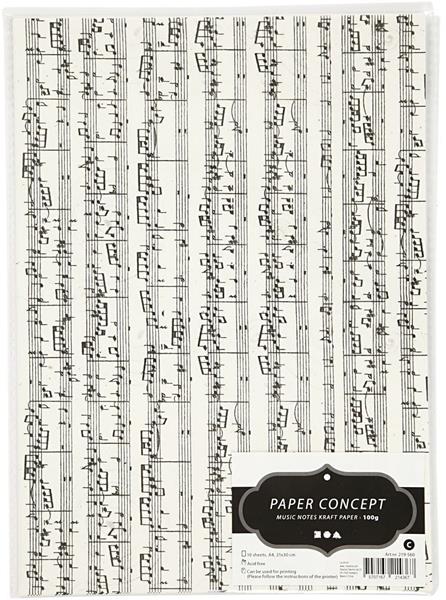 PAPER CONCEPT
MUSIC NOTES KRAFT PAPER · 100g
10 sheets, A4, 21x30 cm
Acid free
Can be used for printing
(Please follow the instructions of the printer)
C
Art.nr. 219 560
5 707167 214367